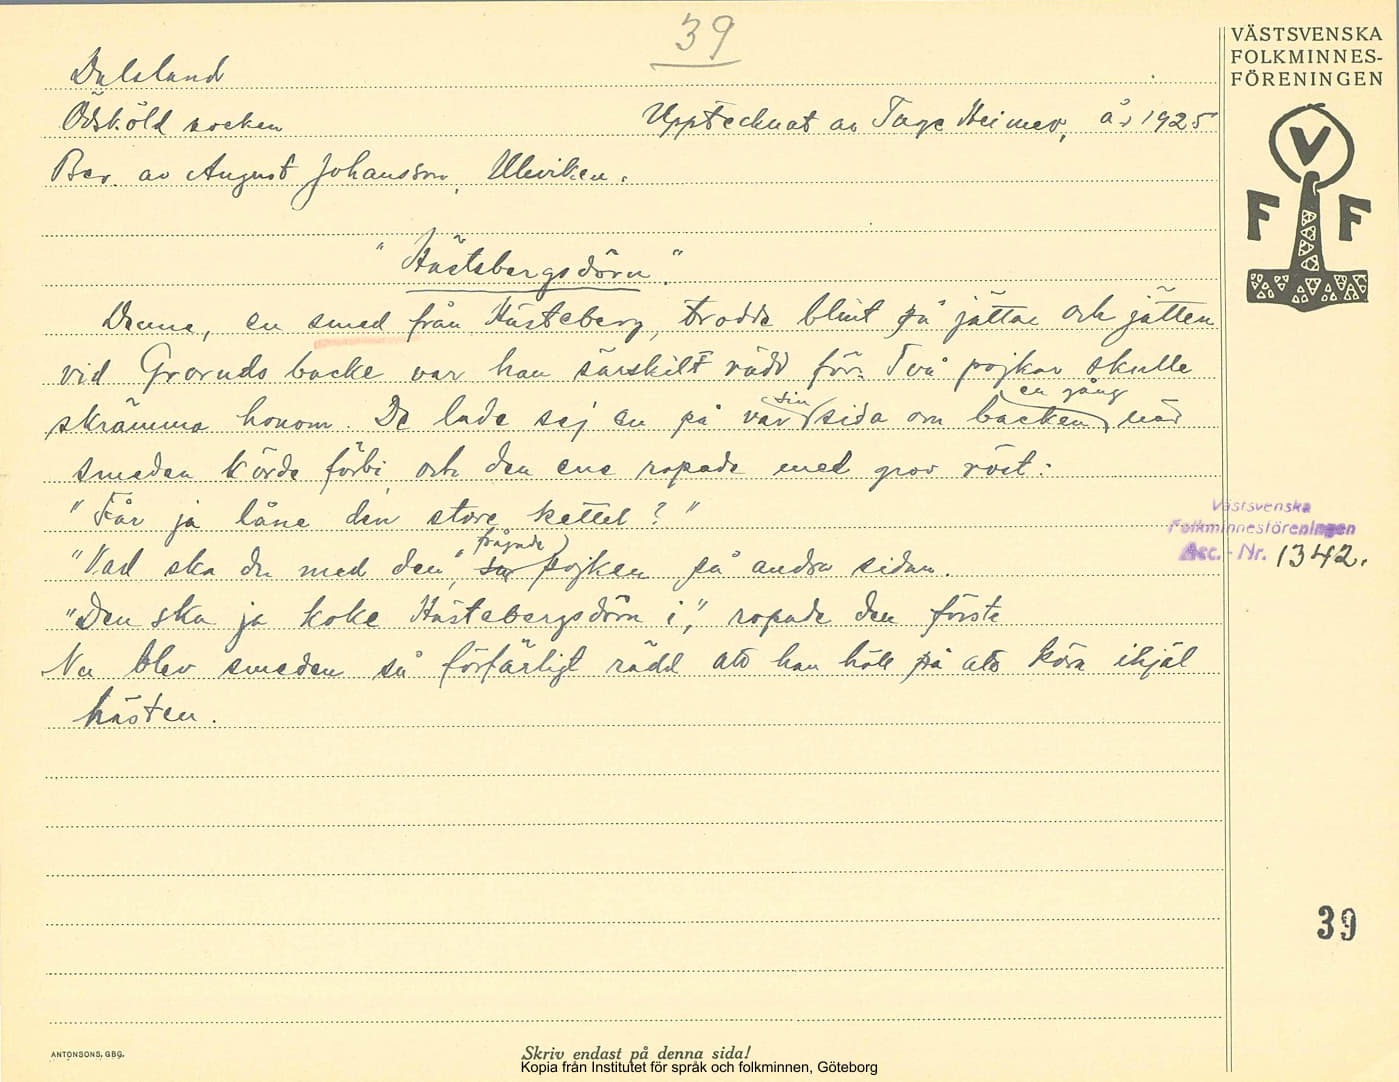 39
VÄSTSVENSKA
FOLKMINNES-
FÖRENINGEN
V
F F
Dalsland
Ödsköld socken
Upptecknat av Tage Heimer, år 1925
Ber. av August Johansson, Ulleviken.
"Hästebergsdörn".
Denne, en smed från Hästeberg, trodde blint på jättar och jätten
vid Groruds backe var han särskilt rädd för. Två pojkar skulle
skrämma honom. De lade sej en på var sin sida om backen en gång, när
smeden körde förbi och den ene ropade med grov röst:
"Får ja låne den store kettel?"
"Vad ska du med den", frågade pojken på andra sidan.
"Den ska ja koke Hästebergsdörn i," ropade den förste
Nu blev smeden så förfärligt rädd att han höll på att köra ihjäl
hästen.
Västsvenska
Folkminnesföreningen
Acc. - Nr. 1342.
39
ANTONSONS, GBG.
Skriv endast på denna sida!
Kopia från Institutet för språk och folkminnen, Göteborg